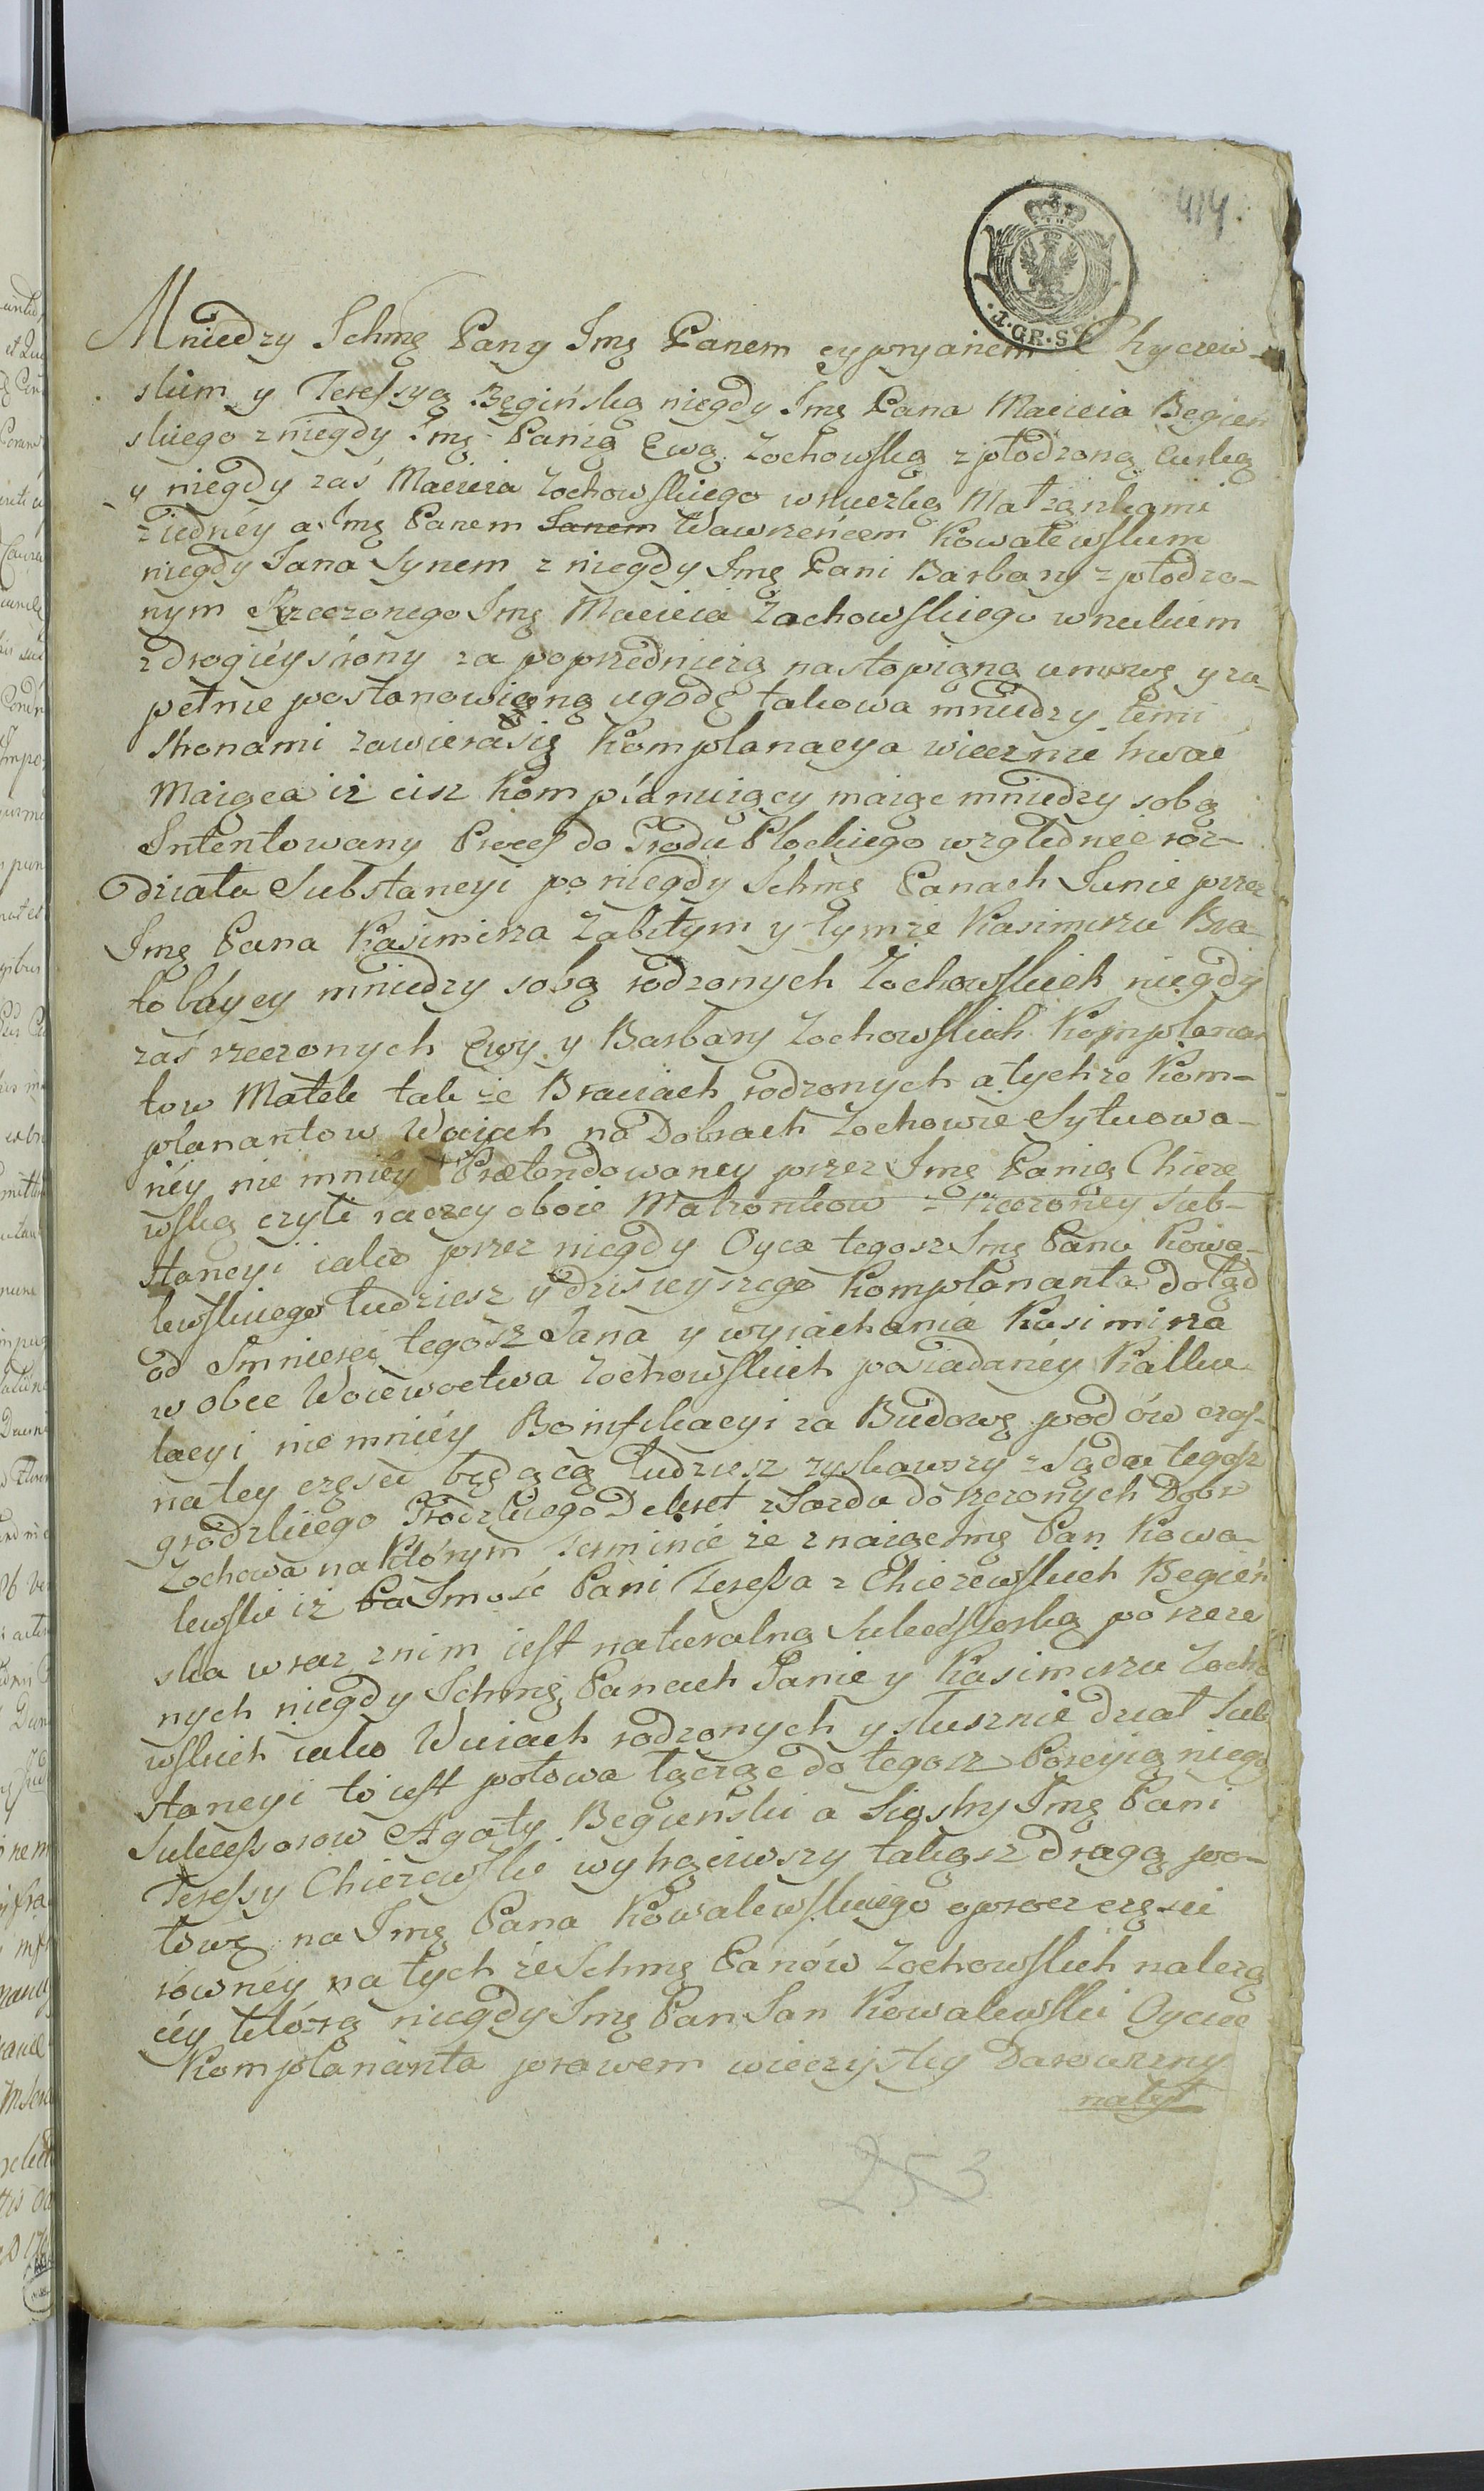 414.
I. GR. SR.
Mniedzy Ichmę Pany Imę Panem cypryanem Chyczew-
skim y Teressyą Bęgińską niegdy Imę Pana Macieia Begień
skiego z niegdy Imę Panią Ewą Zochowską z płodzoną Curką
y niegdy zaś Macieia Zochowskiego wnuczką Małząnkami
z iednéy a Imę Panem Janem Wawrzeńcem Kowalewskim
niegdy Jana Synem z niegdy Imę Pani Barbary z płodzo-
nym Rzeczonego Imę Macieia Zachowskiego wnukiem
z drogiéy stróny za poprzednieią nastąpioną umową y zu-
pełnie postanowięną ugodę takowa mniedzy temi
stronami zawierasię Komplanacya wiecznie trwać
Maiąca iż cisz Komplanuiący maiąc mniedzy sobą
Intentowany Proces do Grodu Płockiego względnie roz-
działu Substancyi po niegdy Ichmę Panach Janie przez
Imę Pana Kasimirza Zabitym y tymże Kasimirzu Bra-
tobáycy mniedzy sobą rodzonych Zochowskich niegdy
zaś rzeczonych Ewy y Barbary Zochowskich Komplanan
tow Matek tak że Braciach rodzonych a tychże Kom-
planantow Wuiach na Dobrach Zochowie Sytuowa-
néy nie mniéy Pretendowaney przez Imę Panią Chicze
wską czyli raczey oboie Małzonkow z Rzeczonéy Sub-
stancyi iako przez niegdy Oyca tegosz Imę Pana Kowa-
lewskiego tudziesz y dzisieyszego Komplananta dotąd
od Smnierci tegosz Jana y wyiachania Kasimirza
w obce Woiewoctwa Zochowskich posiadanéy Kalku-
lacyi nie mniéy Bonifikacyi za Budowę pod ów czas
na tey częsci będącą tudziesz zyskawszy z Sądu tegosz
grodzkiego Grodzkiego Dekret z Jazdu do rzeczonych Dobr
Zochowa na którym terminie że znaiąc Imę Pan Kowa-
lewski iż Pa Imość Pani Teressa z Chiczewskich Begień
ska wraz z nim iest naturalną Sukcessorką po rzeczo
nych niegdy Ichmę Panach Janie y Kasimirzu Zocho
wskich iako Wuiach rodzonych y słusznie dział Sub
stancyi to iest połowa łącząc do tegosz Porcyią niegdy
Sukcessorow Agaty Begienski a Siostry Imę Pani
Teressy Chiczewski wytrąciwszy takąsz drugą po-
łowę na Imę Pana Kowalewskiego oprocz częsci
równéy na tych że Ichmę Panów Zochowskich należą
céy którą niegdy Imę Pan Jan Kowalewski Oyciec
Komplananta prawem wieczysty Darowizny
nabył
253